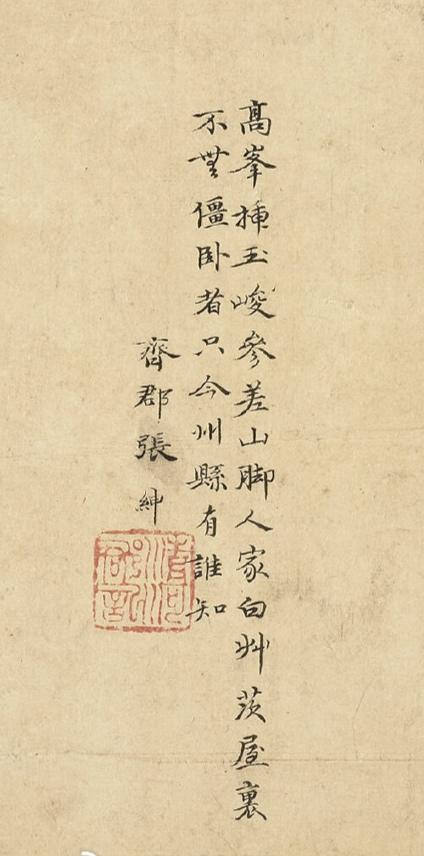 髙峯揷玉峻參差山脚人家白艸茨屋裏
不無僵卧者只今州縣有誰知
齊郡張紳